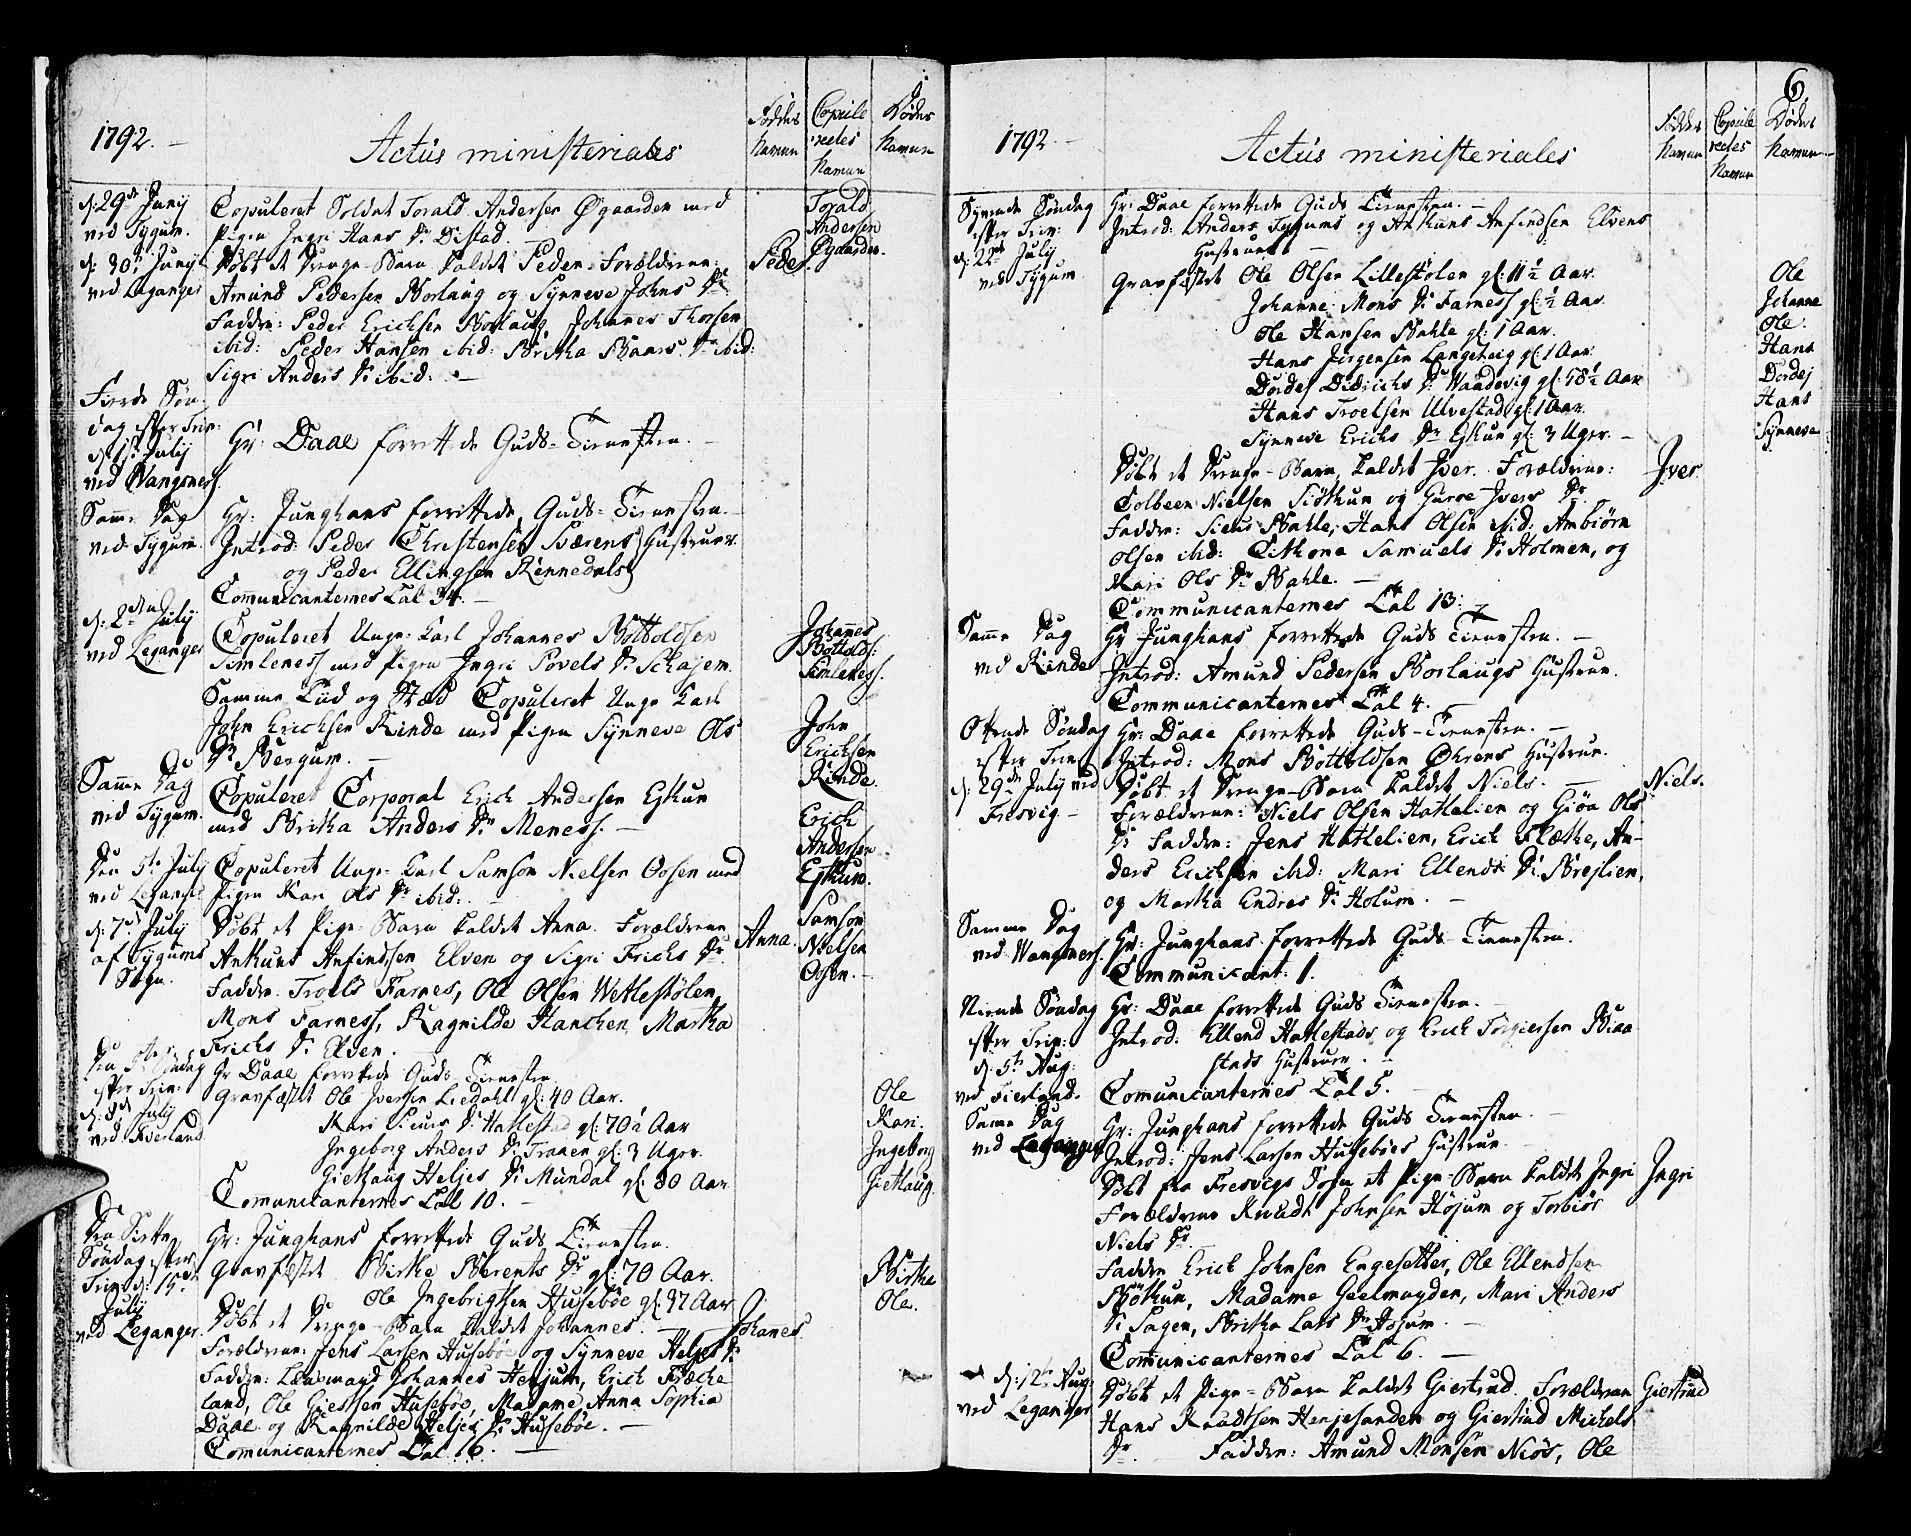 1792.
Actus ministeriales
Føddes Navne
Copuleredes Navne
Dødes Navne
d: 29de Junij
ved Tygum.
Copuleret Soldat Torald Andersen Øgaarden med
Pigen Ingri Hans Dr Distad.
Torald
Andersen
Øgaarden.
d: 30te Junij
ved Leganger
Døbt et Drenge-Barn kaldet Peder. Forældrene:
Peder
Amund Pedersen Borlaug og Synneve Johns Dr
Faddere: Peder Erichsen Borlaug, Johannes Thorsen
ibid: Peder Hansen ibid: Britha Baars Dr ibid:
Sigri Anders Dr ibid: —
Fierde Søn-
dag efter Trin:
d: 1te Julij
ved Wangsness.
Hr: Daae forrettede Guds-Tieneste. —
Samme Dag
ved Tygum.
Hr: Junghans forrettede Guds-Tienesten.
Introd: Peder Christensen Sværens Hustruer.
og Peder Ellingsen Rennedals
Communicanternes Tal 34. —
d: 2den Julij
ved Leganger
Copuleret Unge-Karl Johannes Bottolfsen
Simleness med Pigen Ingri Povels Dr Schajem.
Johannes
Bottolfs:
Simleness.
Samme Tiid og Stæd Copuleret Unge Karl
John Erichsen Rinde med Pigen Synneve Ols
Dr Bergum. —
John
Erichsen
Rinde.
Samme Dag
ved Tygum.
Copuleret Corporal Erich Andersen Eschum
med Britha Anders Dr Meness. —
Erich
Andersen
Den 5te Julij
ved Leganger
Copuleret Unge-Karl Samson Nielsen Oosen med
Pigen Kari Ols Dr ibid: —
Samson
Nielsen
Oosen.
d: 7de Julij
af Tygums
Sogn.
Døbt et Pige-Barn kaldet Anna. Forældrene
Anna.
Ankuns Anfindsen Elven og Sigri Erichs Dr
Faddere: Troels Farnes, Ole Olsen Wetlestølen,
Mons Farness, Ragnilde Hanchen, Martha
Erichs Dr Elven.
efter Trin:
d: 8de Julij
ved Fierland
Hr Daae forrettede Guds-Tienesten
Gravfæstet Ole Iversen Liedahl gl: 40 Aar.
Kari Siurs Dr Hatlestad gl: 70½ Aar
Ingeborg Anders Dr Traaen gl: 3 Uger.
Giethaug Heljes Dr Mundal gl: 80 Aar
Communicanternes Tal 10. —
Ole
Kari.
Ingeborg
Giethaug.
Den Siette
Søndag efter
Trin: d: 15de
Julij
ved Leganger.
Hr: Junghans forrettede Guds Tienesten.
Gravfæstet Birthe Berents Dr gl: 70 Aar.
Ole Ingebrigtsen Husebøe gl: 37 Aar
Birthe
Ole.
Døbt et Drenge-Barn kaldet Johannes. —
Johanes
Forældrene: Jens Larsen Husebøe og Synneve Heljes Dr
Faddere: Leensmand Johannes Henjum, Erich Fræche
land, Ole Giertsen Husebøe, Madame Anna Sophia
Daae og Ragnilde Heljes Dr Husebøe. —
Communicanternes Tal 6. —
6.
1792.
Actus ministeriales
Føddes Navne
Copuleredes Navne
Dødes Navne
Syvende Søndag
efter Trin:
d: 22de Julij
ved Tygum.
Hr: Daae forrettede Guds Tienesten. —
Introd: Anders Tygums og Ankuns Anfindsen Elvens
Hustruer —
Gravfæstet Ole Olsen Lillestølen gl: 11½ Aar.
Johanne Mons Dr Farness gl: ½ Aar.
Ole Hansen Bahle gl: 1 Aar.
Hans Jørgensen Langeteig gl: 1 Aar.
Dordej Didrichs Dr Waadevig gl: 58½ Aar
Hans Troelsen Ulvestad gl: 1 Aar.
Synneve Erichs Dr Eschum gl: 3 Uger. —
Ole
Johanne
Ole.
Hans
Dordej
Hans
Synneve
Døbt et Drenge-Barn, kaldet Iver. Forældrene:
Iver.
Tolbeen Nielsen Siøthun og Guroe Ivers Dr
Faddere: Siur Bahle, Hans Olsen ibid: Ambiörn
Olsen ibid: Sithone Samuels Dr Holmen, og
Kari Ols Dr Bahle. —
Communicanternes Tal 13. —
Samme Dag
ved Rinde
Hr Junghans forrettede Guds Tienesten. —
Introd: Amund Pedersen Borlaugs Hustrue.
Communicanternes Tal 4. —
Ottende Søndag
efter Trin:
d: 29de Julij ved
Fresvig —
Hr: Daae forrettede Guds-Tienesten. —
Introd: Mons Bottolfsen Øhrens Hustrue.
Døbt et Drenge-Barn kaldet Niels. —
Niels.
Forældrene: Niels Olsen Hatlelien og Giöa Ols
Dr Faddere: Jens Hatlelien, Erich Slæthe, An-
ders Erichsen ibid: Mari Ellends Dr Brejlien,
og Martha Endres Dr Holum. —
Samme Dag
ved Wangsness.
Hr: Junghans forrettede Guds-Tienesten.
Communicant: 1.
Niende Søndag
efter Trin:
d: 5te Aug:
ved Fierland.
Hr: Daae forrettede Guds Tienesten.
Introd: Ellend Hatlestads og Erich Torgiersen Biaa
stads Hustruer. —
Communicanternes Tal 5. —
Samme Dag
ved Leganger
Hr: Junghans forrettede Guds Tienesten. —
Introd: Jens Larsen Husebøes Hustrue.
Døbt fra Fresvigs Sogn et Pige-Barn kaldet Ingri
Ingri
Forældrene Knudt Johnsen Højum og Torbiör
Niels Dr
Faddere Erich Johnsen Engesetter, Ole Ellendsen
Bøthun, Madame Geelmuyden, Mari Anders
Dr Sagen, Britha Lars Dr Højum. —
Communicanternes Tal 6. —
d: 12te Aug:
ved Leganger
Døbt et Pige-Barn kaldet Giertrud. Forældrene
Giertrud
Hans Knudtsen Henjesanden og Giertrud Michels
Dr. Faddere: Amund Monsen Niøs, Ole